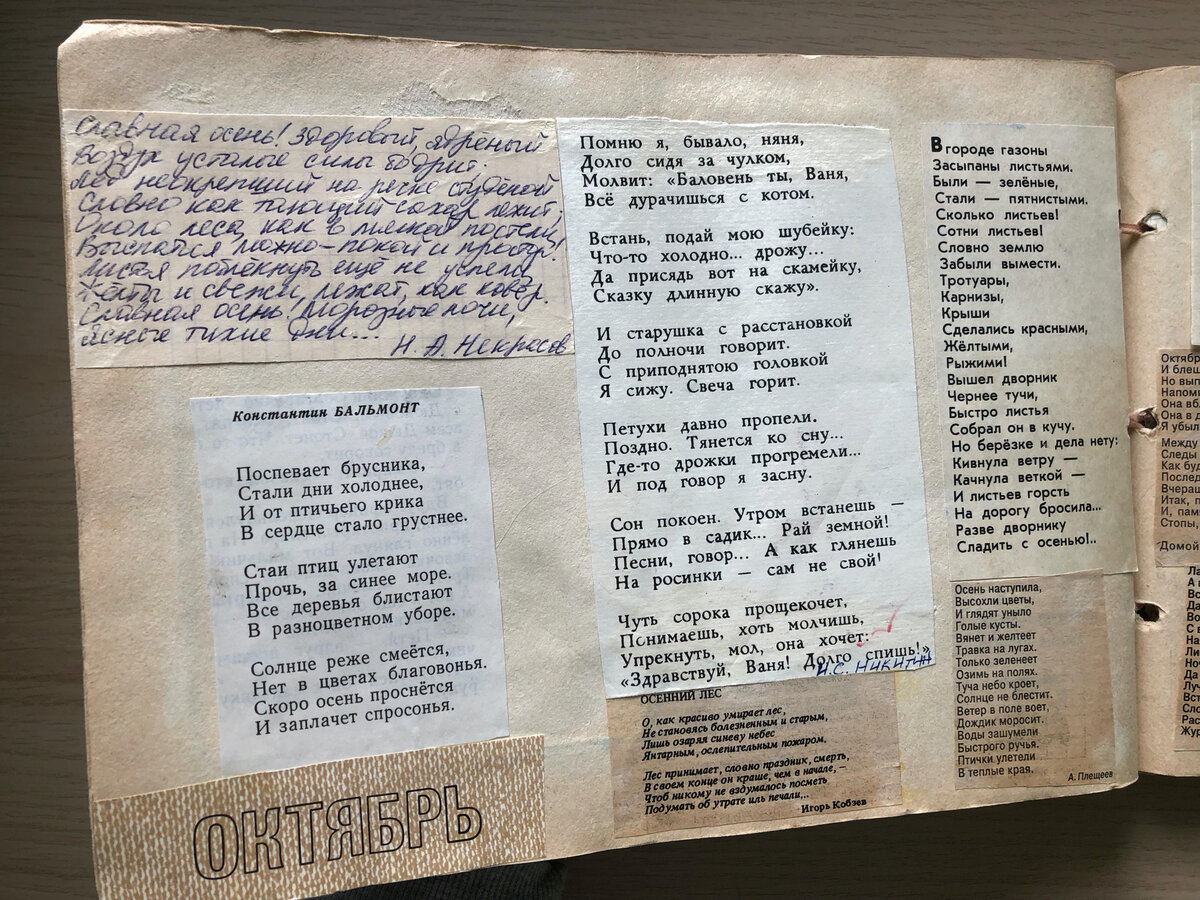 Славная осень! Здоровый, ядрёный
Воздух усталые силы бодрит.
Лёд неокрепший на речке студёной
Словно как тающий сахар лежит;
Около леса, как в мягкой постели,
Выспаться можно – покой и простор!
Листья поблекнуть ещё не успели,
Жёлты и свежи, лежат, как ковёр.
Славная осень! Морозные ночи,
Ясные тихие дни...
Н. А. Некрасов
Константин БАЛЬМОНТ
Поспевает брусника,
Стали дни холоднее,
И от птичьего крика
В сердце стало грустнее.
Стаи птиц улетают
Прочь, за синее море.
Все деревья блистают
В разноцветном уборе.
Солнце реже смеётся,
Нет в цветах благовонья.
Скоро осень проснётся
И заплачет спросонья.
ОКТЯБРЬ
Помню я, бывало, няня,
Долго сидя за чулком,
Молвит: «Баловень ты, Ваня,
Всё дурачишься с котом.
Встань, подай мою шубейку:
Что-то холодно... дрожу...
Да присядь вот на скамейку,
Сказку длинную скажу».
И старушка с расстановкой
До полночи говорит.
С приподнятою головкой
Я сижу. Свеча горит.
Петухи давно пропели.
Поздно. Тянется ко сну...
Где-то дрожки прогремели...
И под говор я засну.
Сон покоен. Утром встанешь —
Прямо в садик... Рай земной!
Песни, говор... А как глянешь
На росинки — сам не свой!
Чуть сорока прощекочет,
Понимаешь, хоть молчишь,
Упрекнуть, мол, она хочет:
«Здравствуй, Ваня! Долго спишь!»
И.С. Никитин
ОСЕННИЙ ЛЕС
О, как красиво умирает лес,
Не становясь болезненным и старым,
Лишь озаряя синеву небес
Янтарным, ослепительным пожаром.
Лес принимает, словно праздник, смерть,
В своем конце он краше, чем в начале, –
Чтоб никому не вздумалось посметь
Подумать об утрате иль печали...
Игорь Кобзев
В городе газоны
Засыпаны листьями.
Были — зелёные,
Стали — пятнистыми.
Сколько листьев!
Сотни листьев!
Словно землю
Забыли вымести.
Тротуары,
Карнизы,
Крыши
Сделались красными,
Жёлтыми,
Рыжими!
Вышел дворник
Чернее тучи,
Быстро листья
Собрал он в кучу.
Но берёзке и дела нету:
Кивнула ветру —
Качнула веткой —
И листьев горсть
На дорогу бросила...
Разве дворнику
Сладить с осенью!..
Осень наступила,
Высохли цветы,
И глядят уныло
Голые кусты.
Вянет и желтеет
Травка на лугах.
Только зеленеет
Озимь на полях.
Туча небо кроет,
Солнце не блестит.
Ветер в поле воет,
Дождик моросит.
Воды зашумели
Быстрого ручья.
Птички улетели
В теплые края.
А. Плещеев
И
Но
Она
Она в
Я
Между
Следы
Как
Итак,
И,
Стопы,
Домой